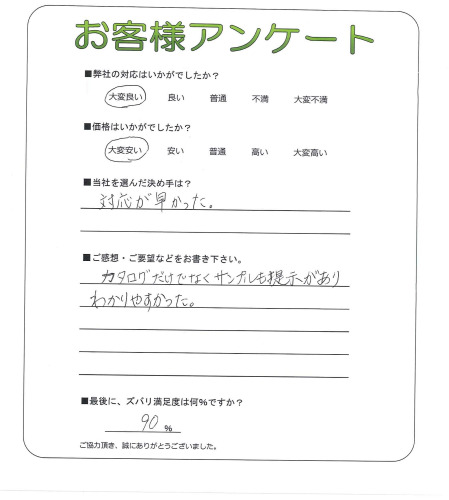 お客様アンケート
■弊社の対応はいかがでしたか？
大変良い 良い 普通 不満 大変不満
■価格はいかがでしたか？
大変安い 安い 普通 高い 大変高い
■当社を選んだ決め手は？
対応が早かった。
■ご感想・ご要望などをお書き下さい。
カタログだけでなくサンプルも提示があり
わかりやすかった。
■最後に、ズバリ満足度は何%ですか？
90 %
ご協力頂き、誠にありがとうございました。